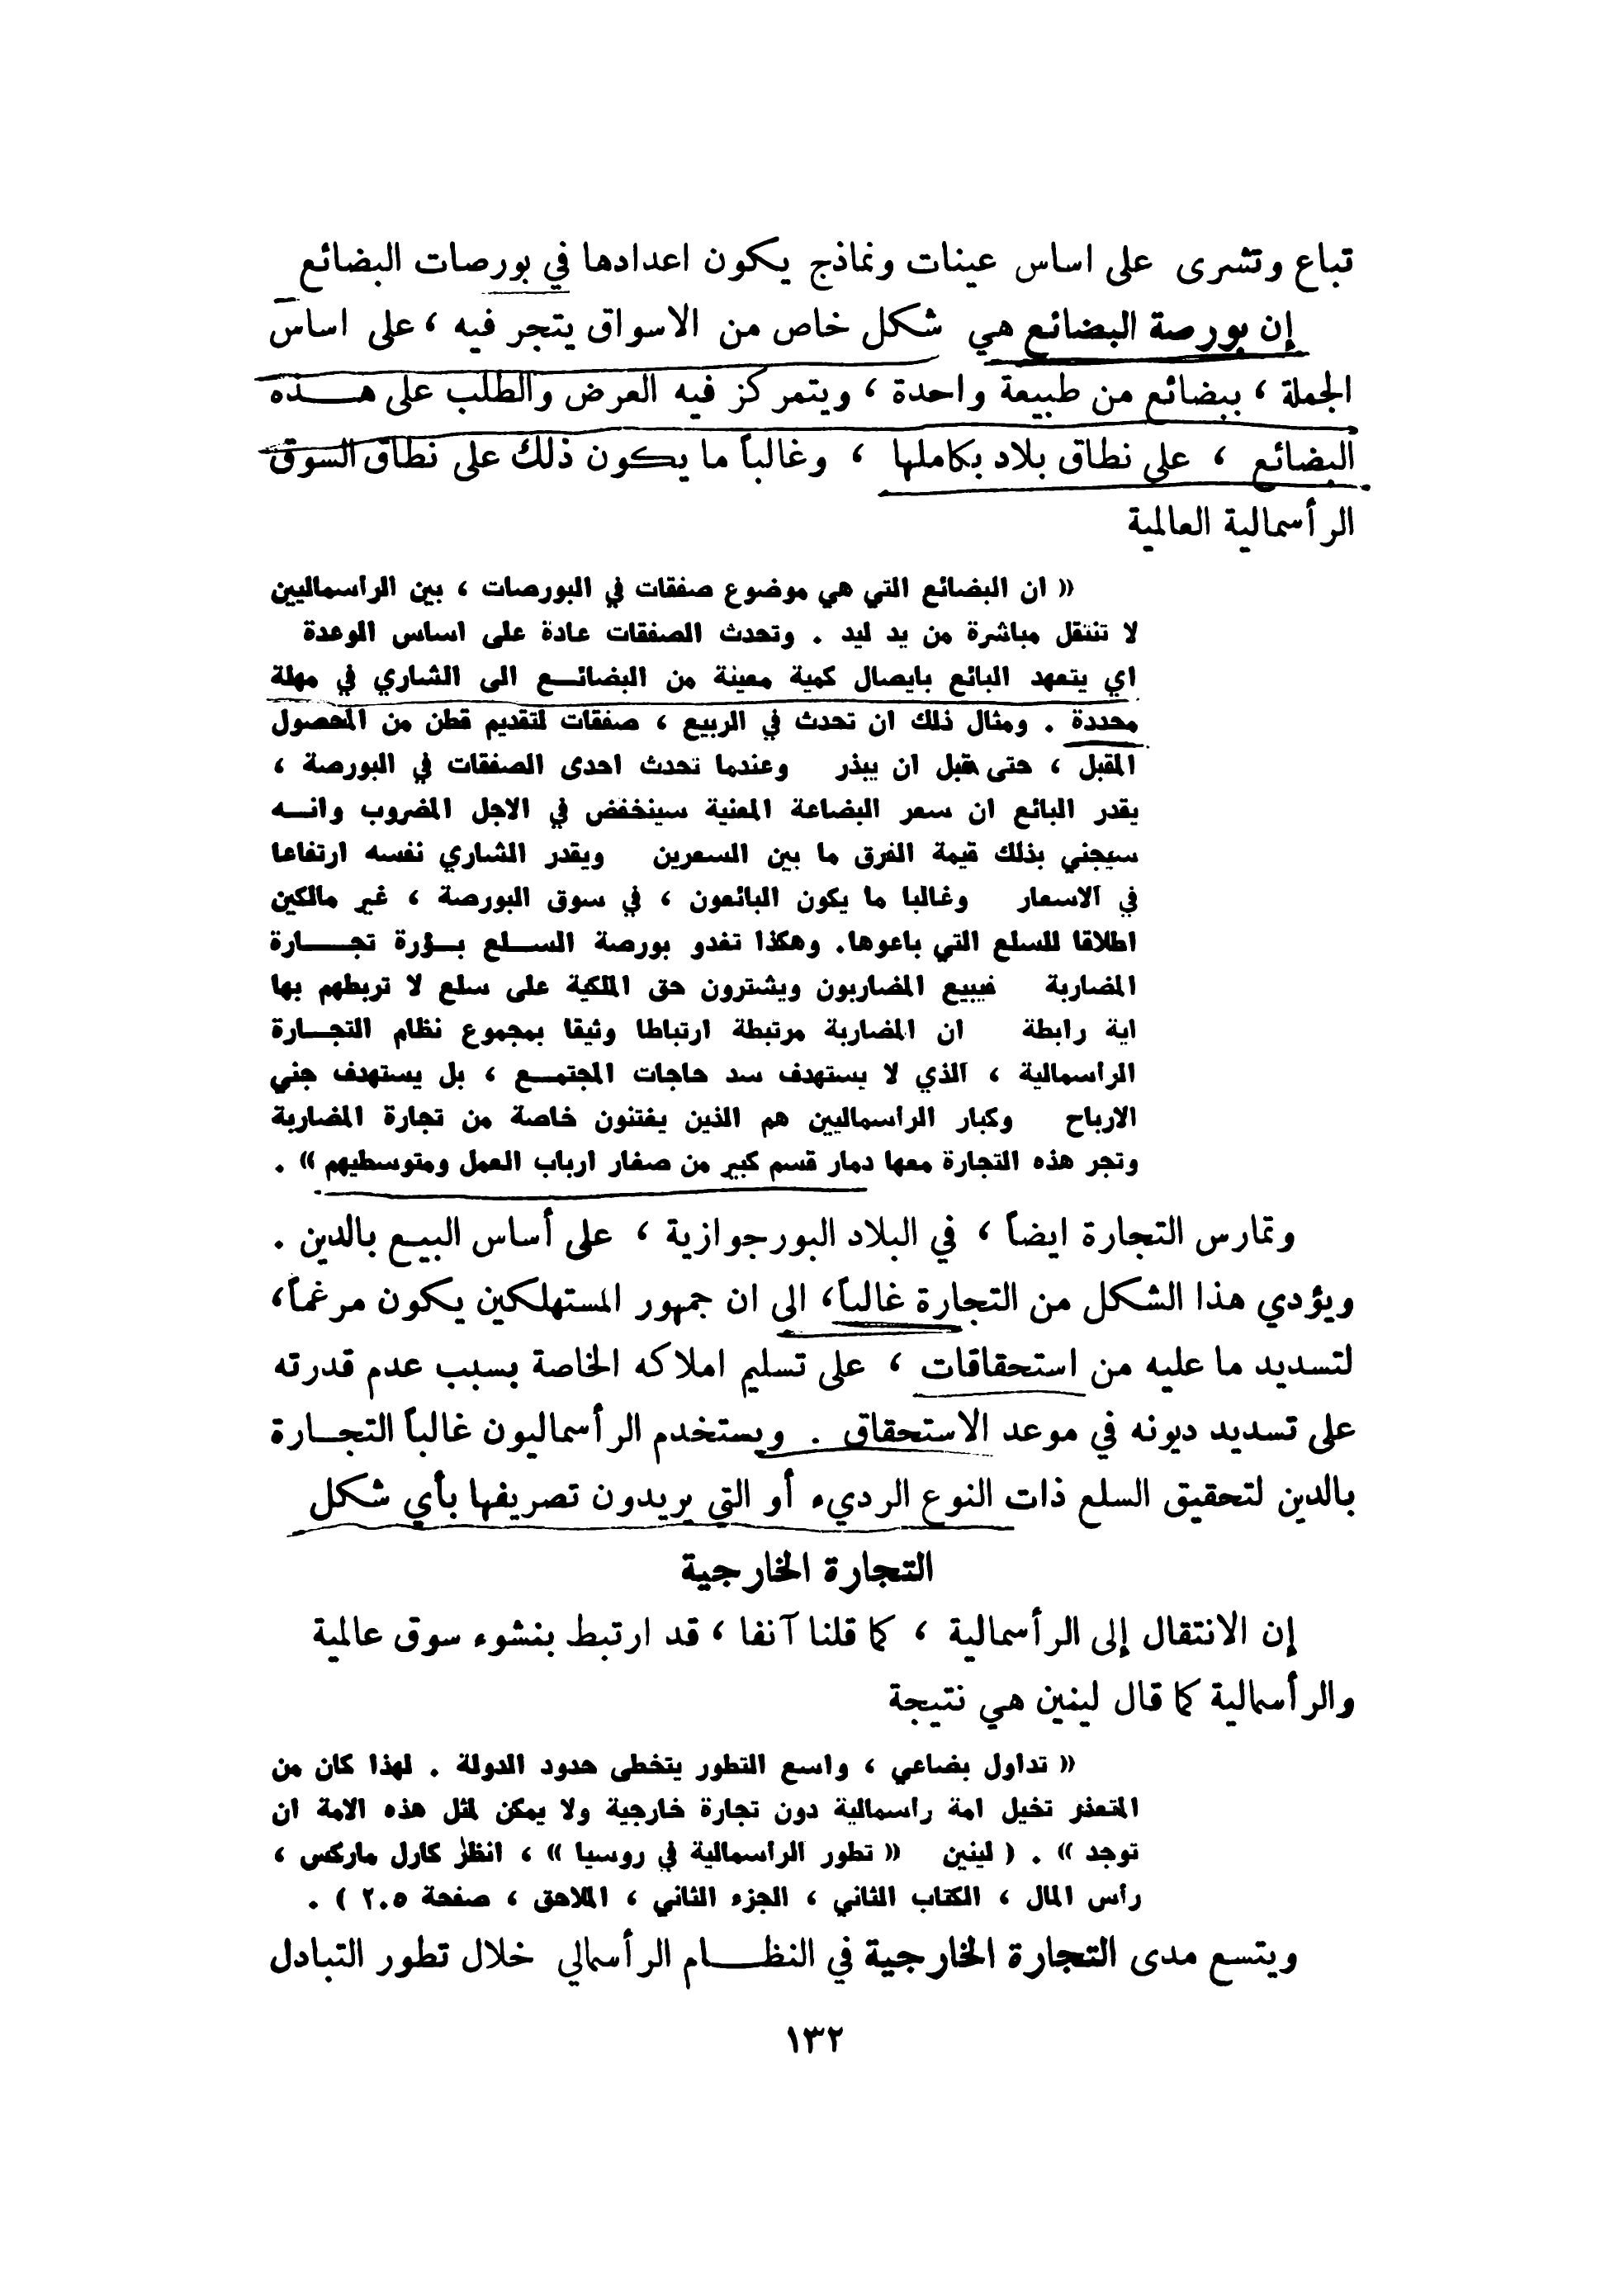 تباع وتشرى على اساس عينات ونماذج يكون اعدادها في بورصات البضائع
إن بورصة البضائع هي شكل خاص من الاسواق يتجر فيه ، على اساس
الجملة ، ببضائع من طبيعة واحدة ، ويتمركز فيه العرض والطلب على هـــذه
البضائع ، على نطاق بلاد بكاملها ، وغالباً ما يكون ذلك على نطاق السوق
الرأسمالية العالمية
« ان البضائع التي هي موضوع صفقات في البورصات ، بين الراسماليين
لا تنتقل مباشرة من يد ليد . وتحدث الصفقات عادة على اساس الوعدة
اي يتعهد البائع بايصال كمية معينة من البضائـــع الى الشاري في مهلة
محددة . ومثال ذلك ان تحدث في الربيع ، صفقات لتقديم قطن من المحصول
المقبل ، حتى قبل ان يبذر وعندما تحدث احدى الصفقات في البورصة ،
يقدر البائع ان سعر البضاعة المعنية سينخفض في الاجل المضروب وانـــه
سيجني بذلك قيمة الفرق ما بين السعرين ويقدر الشاري نفسه ارتفاعا
في الاسعار وغالبا ما يكون البائعون ، في سوق البورصة ، غير مالكين
اطلاقا للسلع التي باعوها. وهكذا تغدو بورصة الســـلع بـــؤرة تجـــــارة
المضاربة فيبيع المضاربون ويشترون حق الملكية على سلع لا تربطهم بها
اية رابطة ان المضاربة مرتبطة ارتباطا وثيقا بمجموع نظام التجـــارة
الرأسمالية ، الذي لا يستهدف سد حاجات المجتمـــع ، بل يستهدف جني
الارباح وكبار الرأسماليين هم الذين يغتنون خاصة من تجارة المضاربة
وتجر هذه التجارة معها دمار قسم كبير من صغار ارباب العمل ومتوسطيهم » .
وتمارس التجارة ايضاً ، في البلاد البورجوازية ، على أساس البيـع بالدين .
ويؤدي هذا الشكل من التجارة غالباً، الى ان جمهور المستهلكين يكون مرغماً،
لتسديد ما عليه من استحقاقات ، على تسليم املاكه الخاصة بسبب عدم قدرته
على تسديد ديونه في موعد الاستحقاق . ويستخدم الرأسماليون غالباً التجــارة
بالدين لتحقيق السلع ذات النوع الرديء أو التي يريدون تصريفها بأي شكل
التجارة الخارجية
إن الانتقال إلى الرأسمالية ، كما قلنا آنفا ، قد ارتبط بنشوء سوق عالمية
والرأسمالية كما قال لينين هي نتيجة
« تداول بضاعي ، واسع التطور يتخطى حدود الدولة . لهذا كان من
المتعذر تخيل امة رأسمالية دون تجارة خارجية ولا يمكن لمثل هذه الامة ان
توجد » . ( لينين « تطور الرأسمالية في روسيا » ، انظر كارل ماركس ،
رأس المال ، الكتاب الثاني ، الجزء الثاني ، الملاحق ، صفحة ٢٠٥ ) .
ويتسع مدى التجارة الخارجية في النظـــــام الرأسمالي خلال تطور التبادل
١٣٢